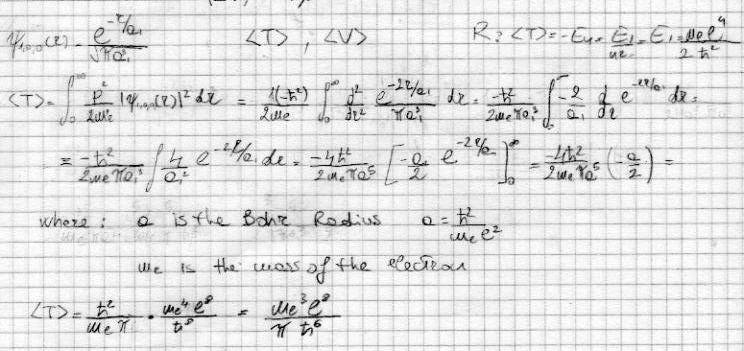 ψ₁,₀,₀(r) = e^(-r/a₁) / √(πa₁³)   <T> , <V>   R: <T> = -E₁ = E₁/n² = E₁ = mₑe⁴ / 2ħ²
<T> = ∫₀^∞ p²/2mₑ |ψ₁,₀,₀(r)|² dr = 1(-ħ²)/2mₑ ∫₀^∞ d²/dr² e^(-2r/a₁)/πa₁³ dr = -ħ²/2mₑπa₁³ ∫₀^∞ -2/a₁ d/dr e^(-2r/a₁) dr =
= -ħ²/2mₑπa₁³ ∫ 4/a₁² e^(-2r/a₁) dr = -4ħ²/2mₑπa⁵ [-a/2 e^(-2r/a)]₀^∞ = -4ħ²/2mₑπa⁵ (-a/2) =
where : a is the Bohr Radius a = ħ²/mₑe²
mₑ is the mass of the electron
<T> = ħ²/mₑπ · mₑ⁴e⁸/ħ⁸ = mₑ³e⁸/πħ⁶